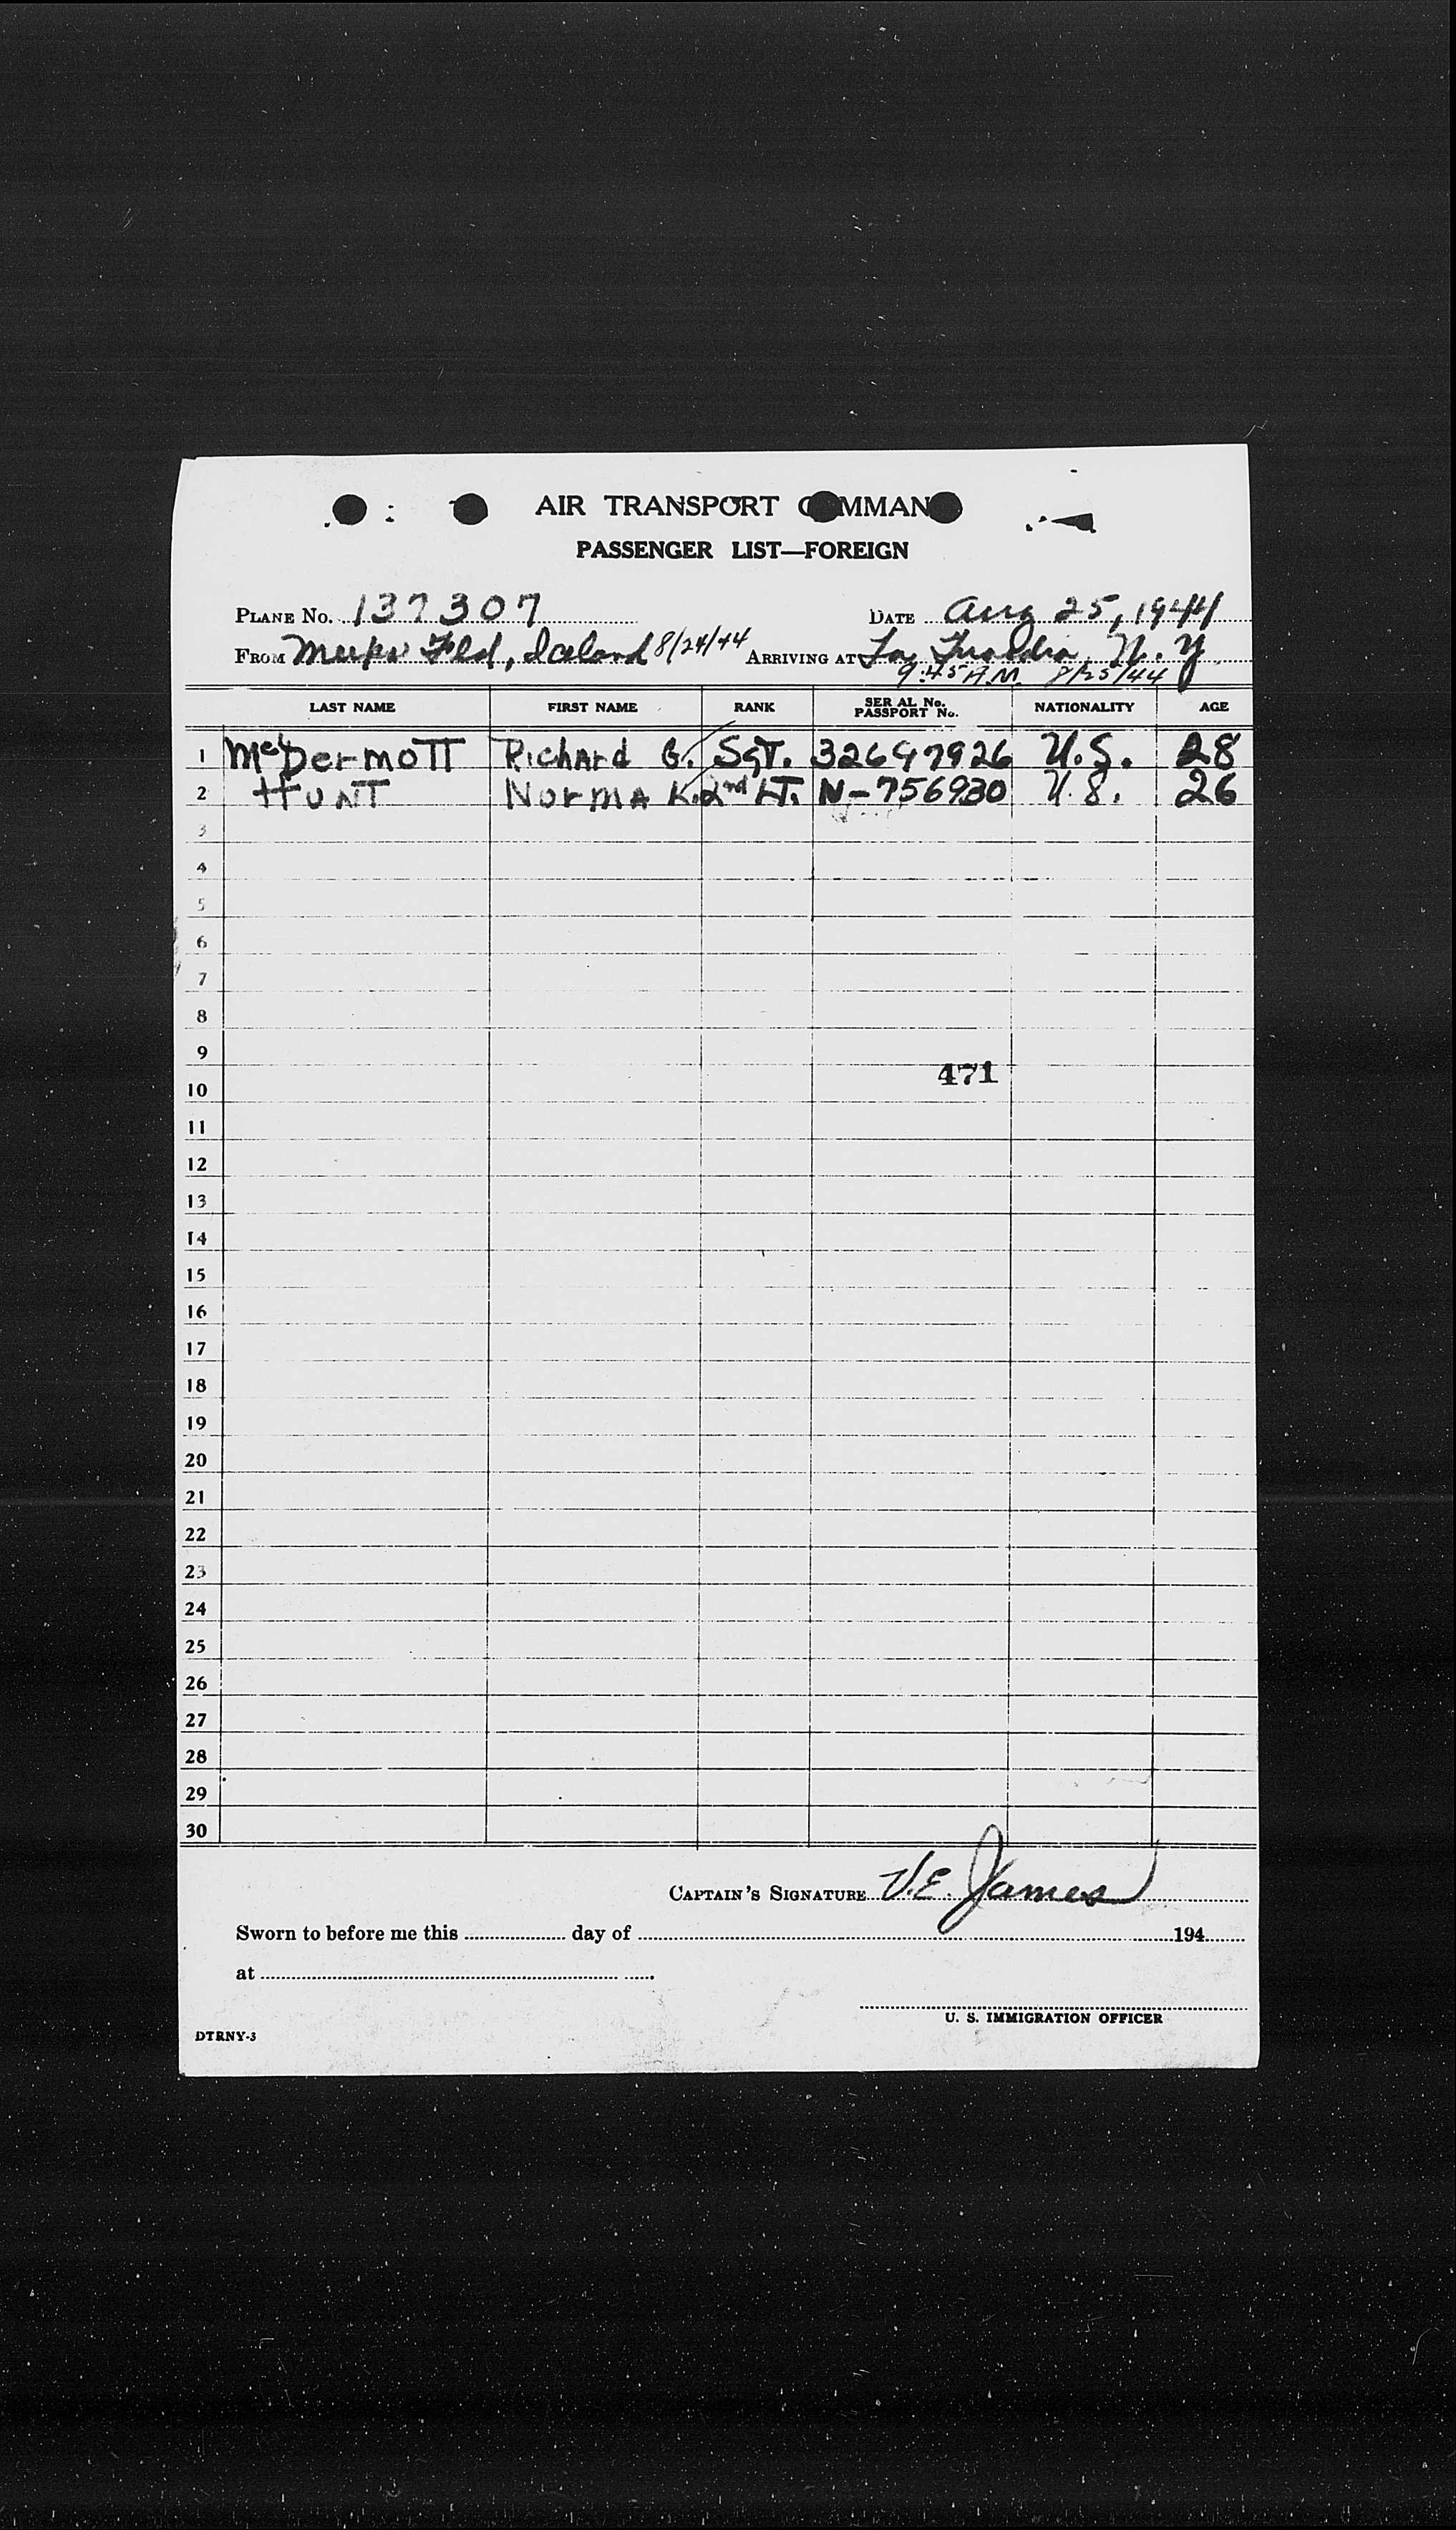 AIR TRANSPORT COMMAND
PASSENGER LIST—FOREIGN
PLANE NO. 137307 DATE Aug 25, 1944
FROM Meeks Fld, Iceland 8/24/44 ARRIVING AT La Guardia, N.Y.
9:45 A.M. 8/25/44
LAST NAME FIRST NAME RANK SERIAL No. PASSPORT No. NATIONALITY AGE
1 McDermott Richard G. Sgt. 32647926 U.S. 28
2 Hunt Norma K. 2nd Lt. N-756930 U.S. 26
3
4
5
6
7
8
9
471
10
11
12
13
14
15
16
17
18
19
20
21
22
23
24
25
26
27
28
29
30
CAPTAIN'S SIGNATURE V.E. James
Sworn to before me this day of 194
at
U. S. IMMIGRATION OFFICER
DTRNY-3